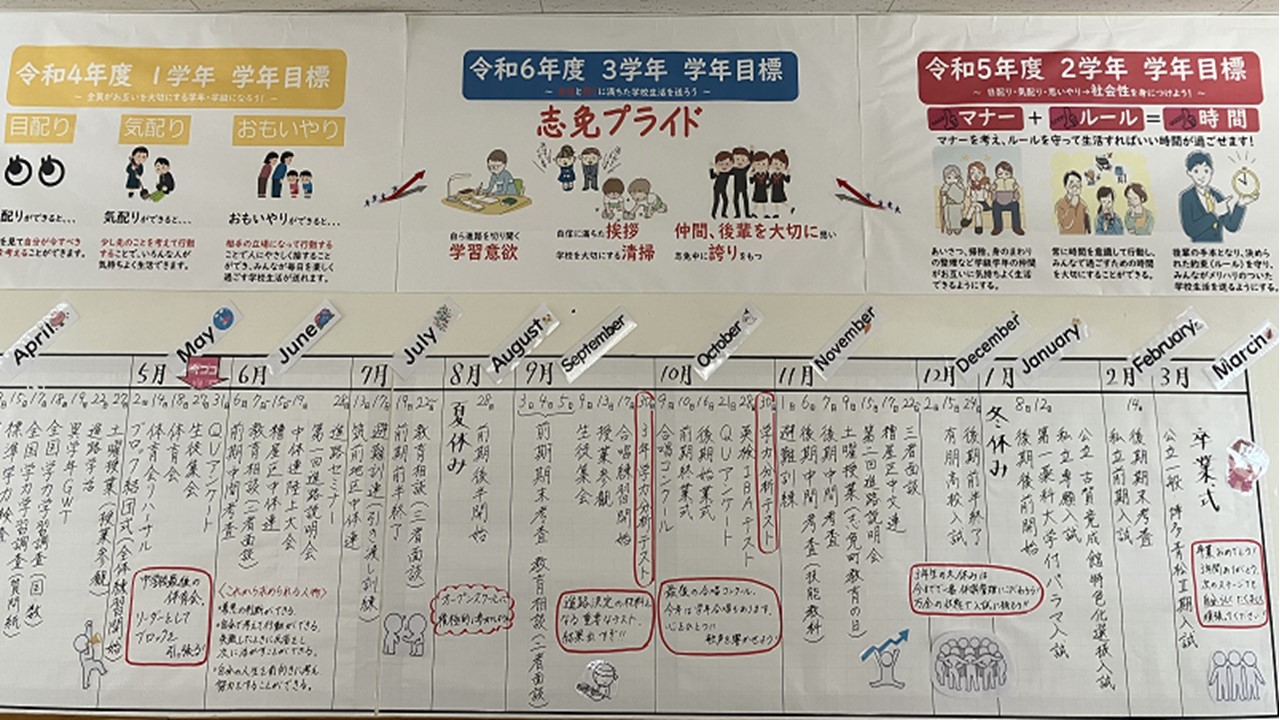 令和4年度 1学年 学年目標
～ 全員がお互いを大切にする学年・学級になろう! ～
目配り 気配り おもいやり
配りができると...
を見て自分が今すべき
を考えることができます。
気配りができると...
少し先のことを考えて行動
することで、いろんな人が
気持ちよく生活できます。
おもいやりができると...
相手の立場になって行動する
ことで人にやさしく接すること
ができ、みんなが毎日を楽しく
過ごす学校生活が送れます。
令和6年度 3学年 学年目標
に満ちた学校生活を送ろう ～
志免プライド
自ら進路を切り開く
学習意欲
自信に満ちた挨拶
学校を大切にする清掃
仲間、後輩を大切に思い
志免中に誇りをもつ
令和5年度 2学年 学年目標
～ 目配り・気配り・思いやり→社会性を身につけよう! ～
マナー + ルール = 時間
マナーを考え、ルールを守って生活すればいい時間が過ごせます!
あいさつ、掃除、身のまわり
の整理など学級学年の仲間
がお互いに気持ちよく生活
できるようにする。
常に時間を意識して行動し、
みんなで過ごすための時間
を大切にすることができる。
後輩の手本となり、決めら
れた約束(ルール)を守り、
みんながメリハリのついた
学校生活を送るようにする。
April
May
June
July
August
September
October
November
December
January
February
March
今ココ
5月
6月
7月
8月
9月
10月
11月
12月
1月
2月
3月
全国学力学習調査(国数)
全国学力学習調査(質問紙)
進路学活
土曜授業(授業参観)
ブロック結団式(全体練習開始)
体育会リハーサル
体育会
生徒集会
QUアンケート
中学校最後の
体育会。
リーダーとして
ブロックを
引っ張ろう
前期中間考査
教育相談(三者面談)
糟屋区中体連
中体連陸上大会
第一回進路説明会
進路セミナー
〈これから求められる人物〉
・善悪の判断ができる。
・自分で考えて行動ができる。
失敗したときに反省をし
次に活かすことができる。
・自分の人生を前向きに考え、
努力をすることができる。
筑前地区中体連
避難訓練(引き渡し訓練)
前期前半終了
教育相談(三者面談)
夏休み
前期後半開始
オープンスクールに
積極的に参加しよう
前期期末考査
教育相談(二者面談)
生徒集会
授業参観
合唱練習開始
3年学力分析テスト
進路決定の材料と
なる重要なテスト。
合唱コンクール
前期終業式
後期始業式
QUアンケート
英検IBAテスト
学力分析テスト
最後の合唱コンクール。
今年は学年合唱もあります。
心をひとつに
歌声を響かせよう!
避難訓練
後期中間考査
後期中間考査(技能教科)
土曜授業(志免町教育の日)
第二回進路説明会
糟屋区中文連
三者面談
有朋高校入試
後期前半終了
冬休み
3年生の冬休みは
今までで一番体調管理にこだわろう!
万全の状態で入試に挑もう!!
後期後半開始
第一薬科大学付パラマ入試
私立専願入試
公立古賀竟成館特色化選抜入試
私立前期入試
後期期末考査
公立一般
博多青松Ⅰ期入試
卒業式
卒業おめでとう!
3年間ありがとう。
次のステージでも
自分らしくたくましく
頑張ってください!